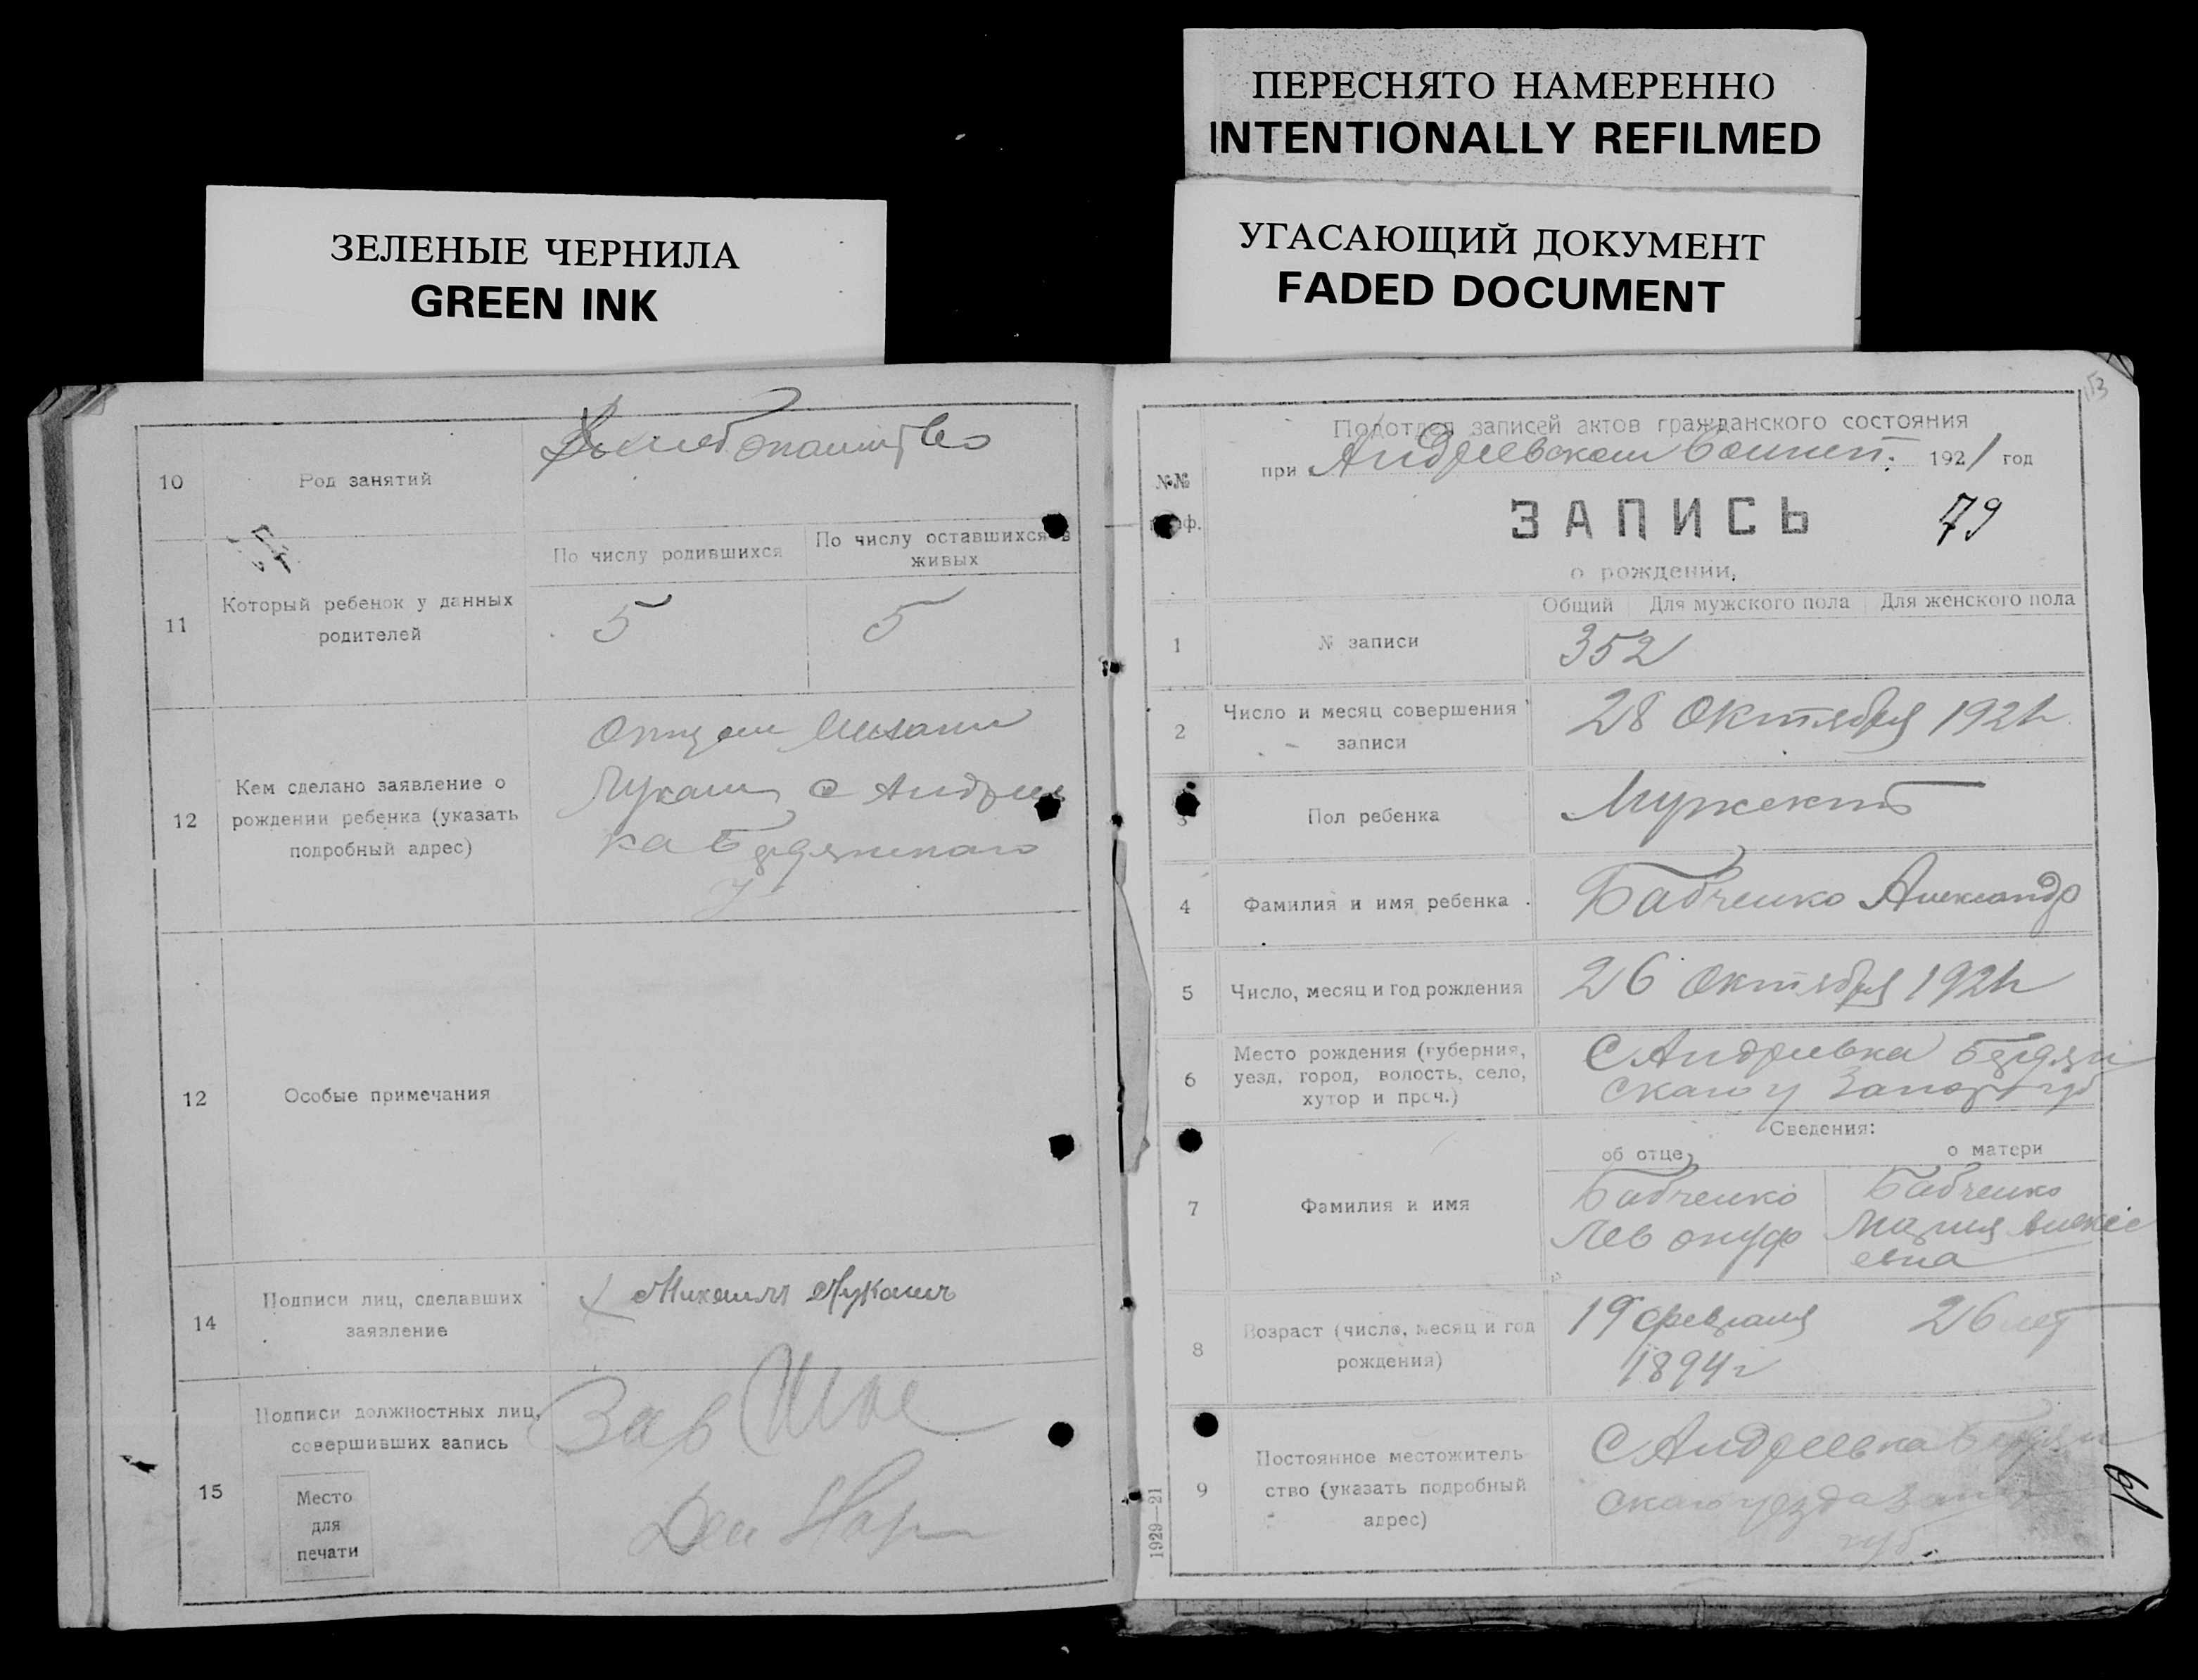 ПЕРЕСНЯТО НАМЕРЕННО
INTENTIONALLY REFILMED
ЗЕЛЕНЫЕ ЧЕРНИЛА
GREEN INK
УГАСАЮЩИЙ ДОКУМЕНТ
FADED DOCUMENT
10
Род занятий
11
Который ребенок у данных
родителей
По числу родившихся
По числу оставшихся в
живых
5
5
12
Кем сделано заявление о
рождении ребенка (указать
подробный адрес)
Отцом
Лукаш с Андреев
ка Бердянскаго
у
12
Особые примечания
14
Подписи лиц, сделавших
заявление
Михаилъ Лукашъ
15
Подписи должностных лиц,
совершивших запись
Место
для
печати
Зав
Подотдел записей актов гражданского состояния
№№
граф.
при Андреевском 1921 год
ЗАПИСЬ
79
о рождении.
Общий
Для мужского пола
Для женского пола
1
№ записи
352
2
Число и месяц совершения
записи
28 Октября 1921 г
3
Пол ребенка
Мужской
4
Фамилия и имя ребенка
Бабченко Александр
5
Число, месяц и год рождения
26 Октября 1921 г
6
Место рождения (губерния,
уезд, город, волость, село,
хутор и проч.)
С Андреевка Бердян
скаго у Запор губ
Сведения:
об отце
о матери
7
Фамилия и имя
Бабченко
Лев онуф
Бабченко
Мария Алексе
евна
8
Возраст (число, месяц и год
рождения)
19 февраля
1894 г
26 лет
9
Постоянное местожитель-
ство (указать подробный
адрес)
С Андреевка Бердян
скаго уезда Запор
губ.
1929—21